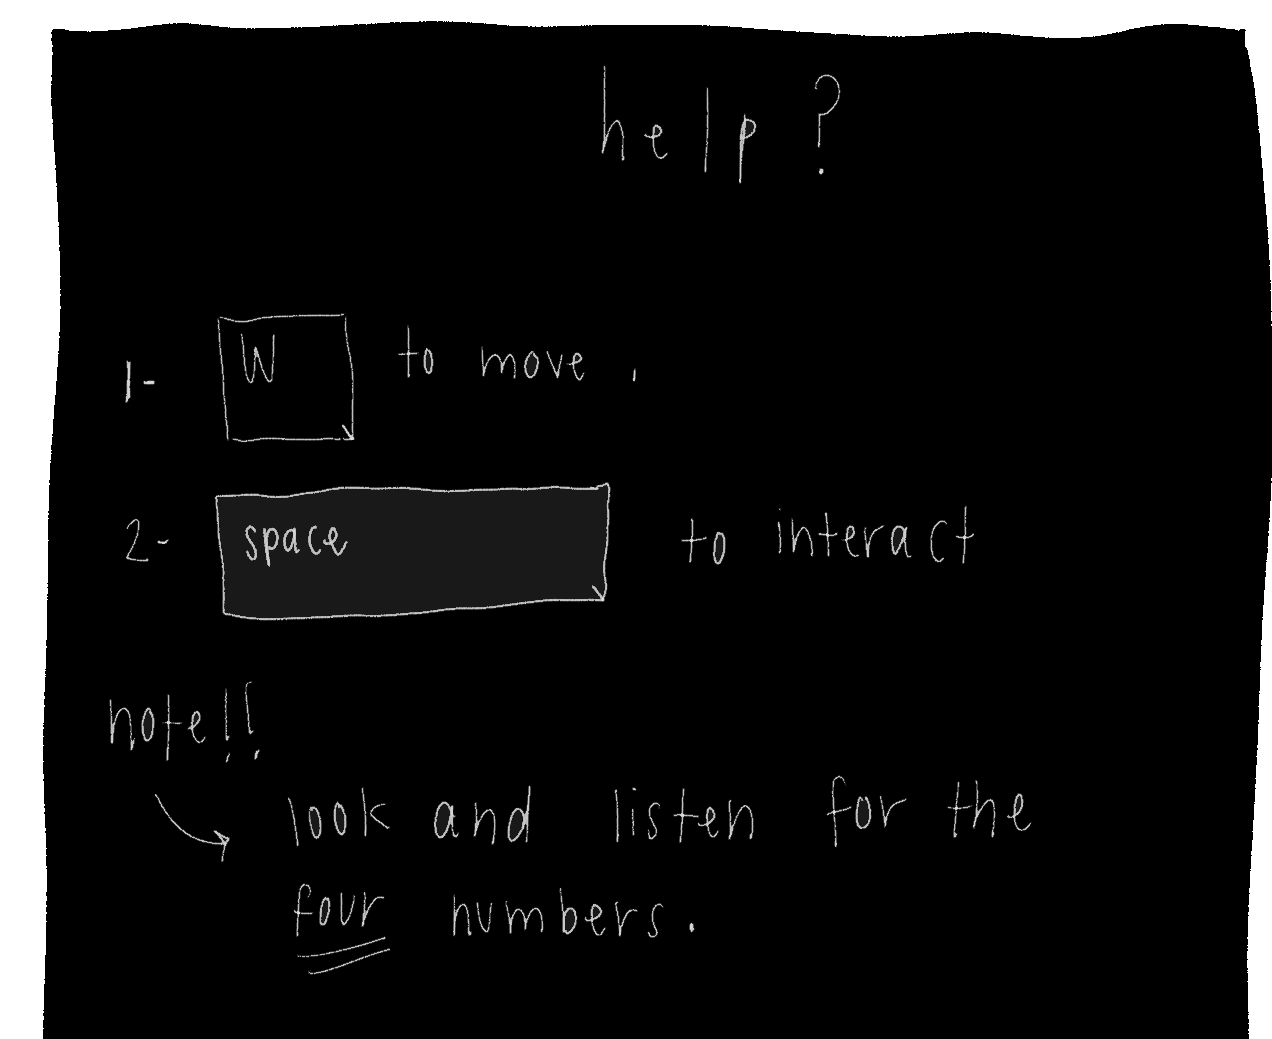 help ?
1- W to move .
2- space to interact
note!!
look and listen for the
four numbers.